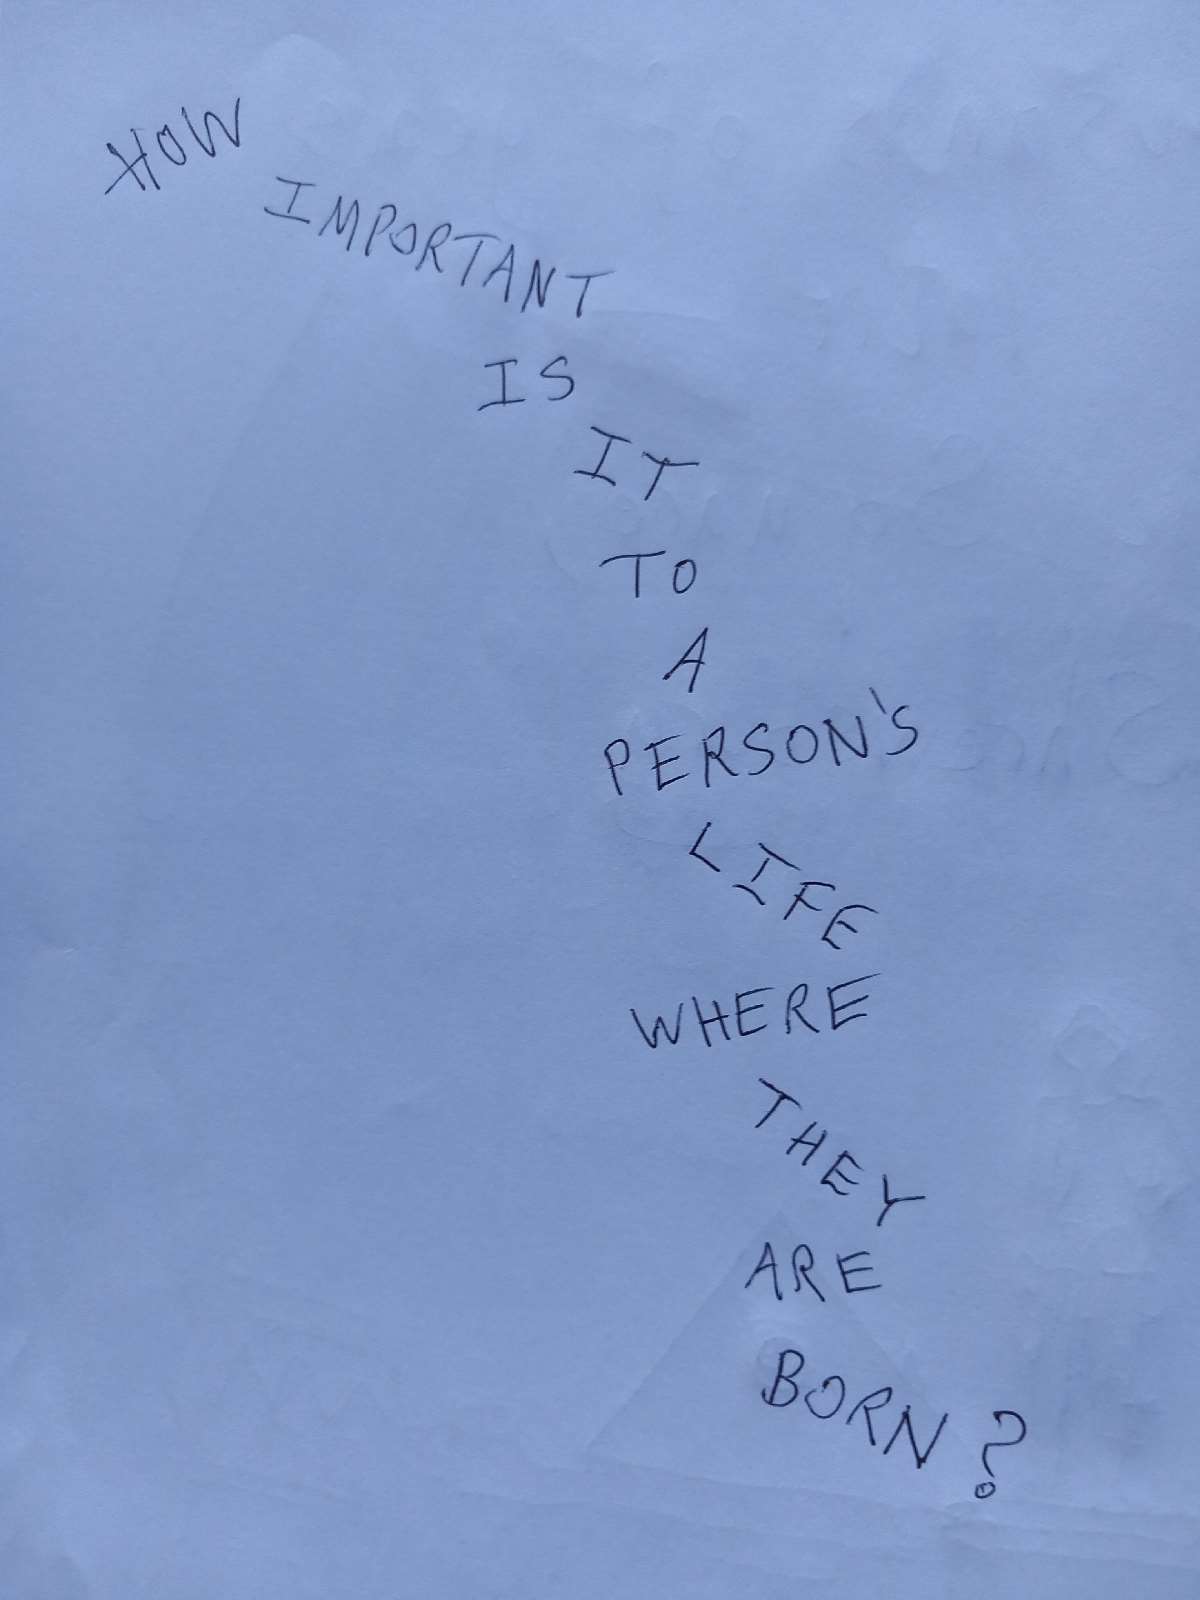 HOW
IMPORTANT
IS
IT
TO
A
PERSON'S
LIFE
WHERE
THEY
ARE
BORN?